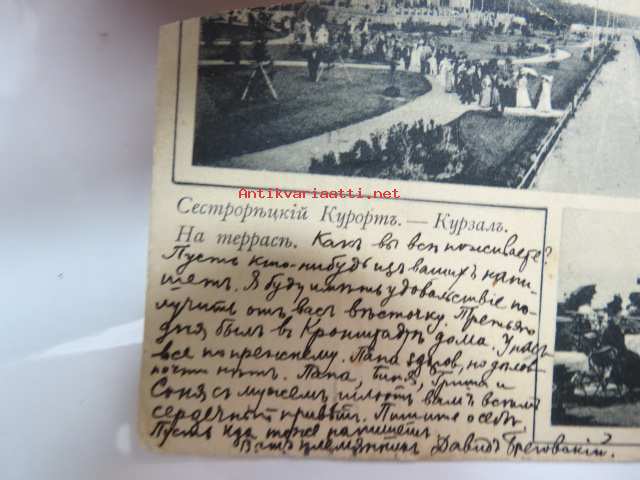 Antikvariaatti.net
Сестрорѣцкій Курортъ. — Курзалъ.
На террасѣ. Какъ вы всѣ поживаете?
Пусть кто-нибудь изъ вашихъ напи-
шетъ. Я буду имѣть удовольствіе по-
лучить отъ васъ вѣсточку. Третьяго
дня былъ въ Кронштадтѣ дома. У насъ
все по прежнему. Папа здоров, но
почти нѣтъ. Папа, Гриша и
Соня съ мужемъ шлютъ вамъ всѣмъ
сердечный привѣтъ. Пишите о себѣ.
Пусть тоже напишетъ.
Вашъ племянникъ Давидъ